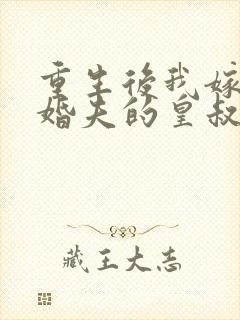 重生後我嫁
婚夫的皇叔
藏王大志